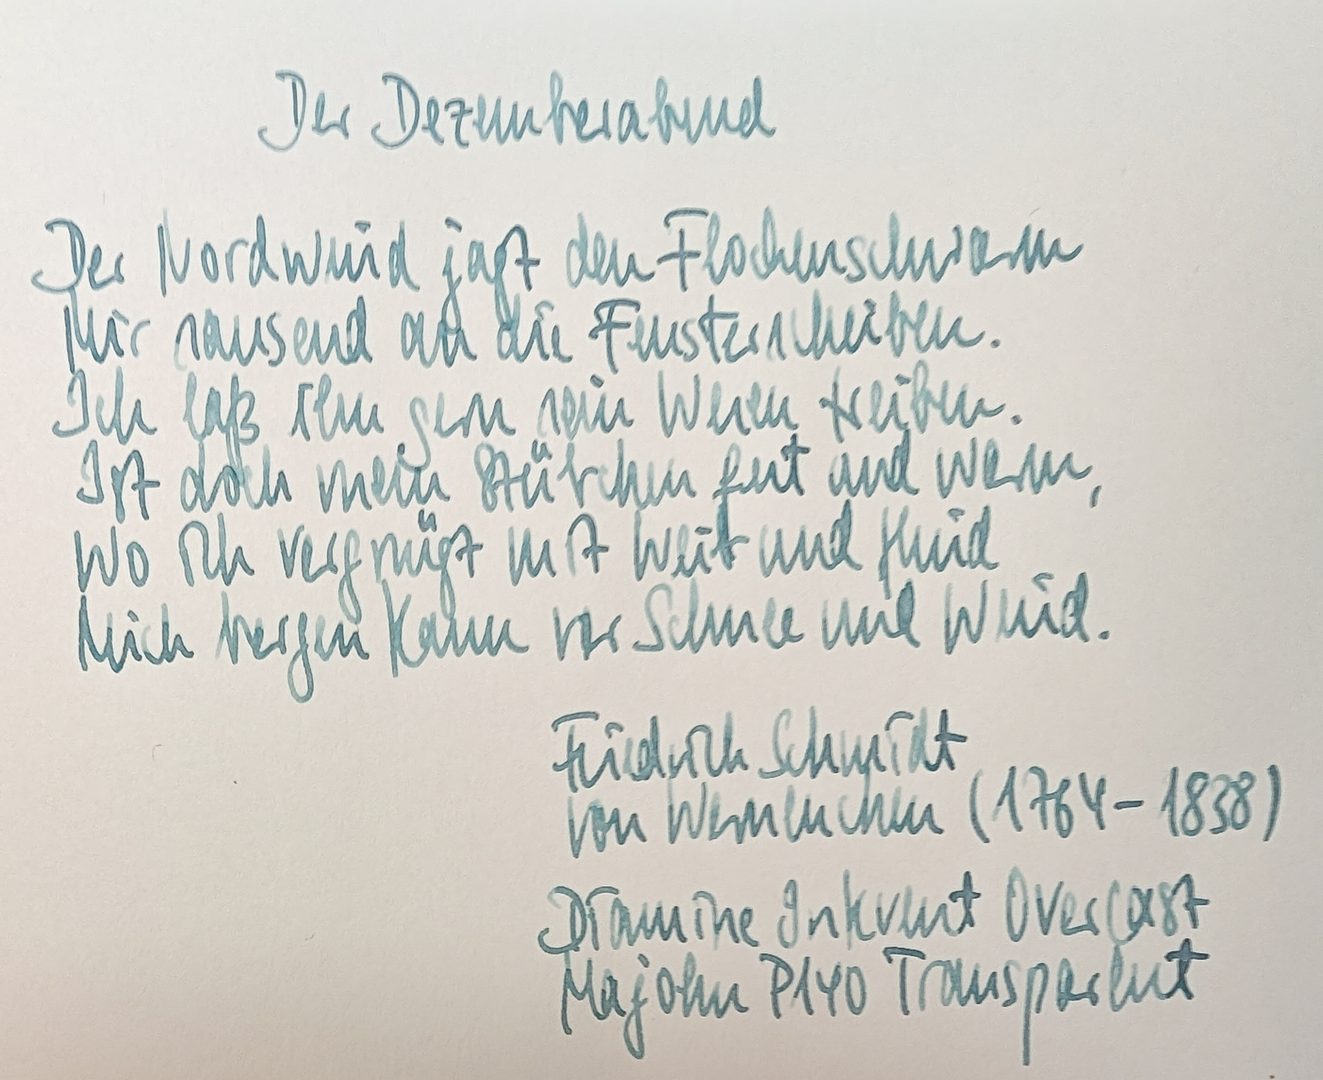 Der Dezemberabend
Der Nordwind jagt den Flockenschwarm
Mir sausend an die Fensterscheiben.
Ich laß ihm gern sein Wesen treiben.
Ist doch mein Stübchen fest und warm,
Wo ich vergnügt mit Weib und Kind
Mich bergen kann vor Schnee und Wind.
Friedrich Schmidt
von Werneuchen (1764-1838)
Diamine Inkvent Overcast
Majohn P140 Transparent